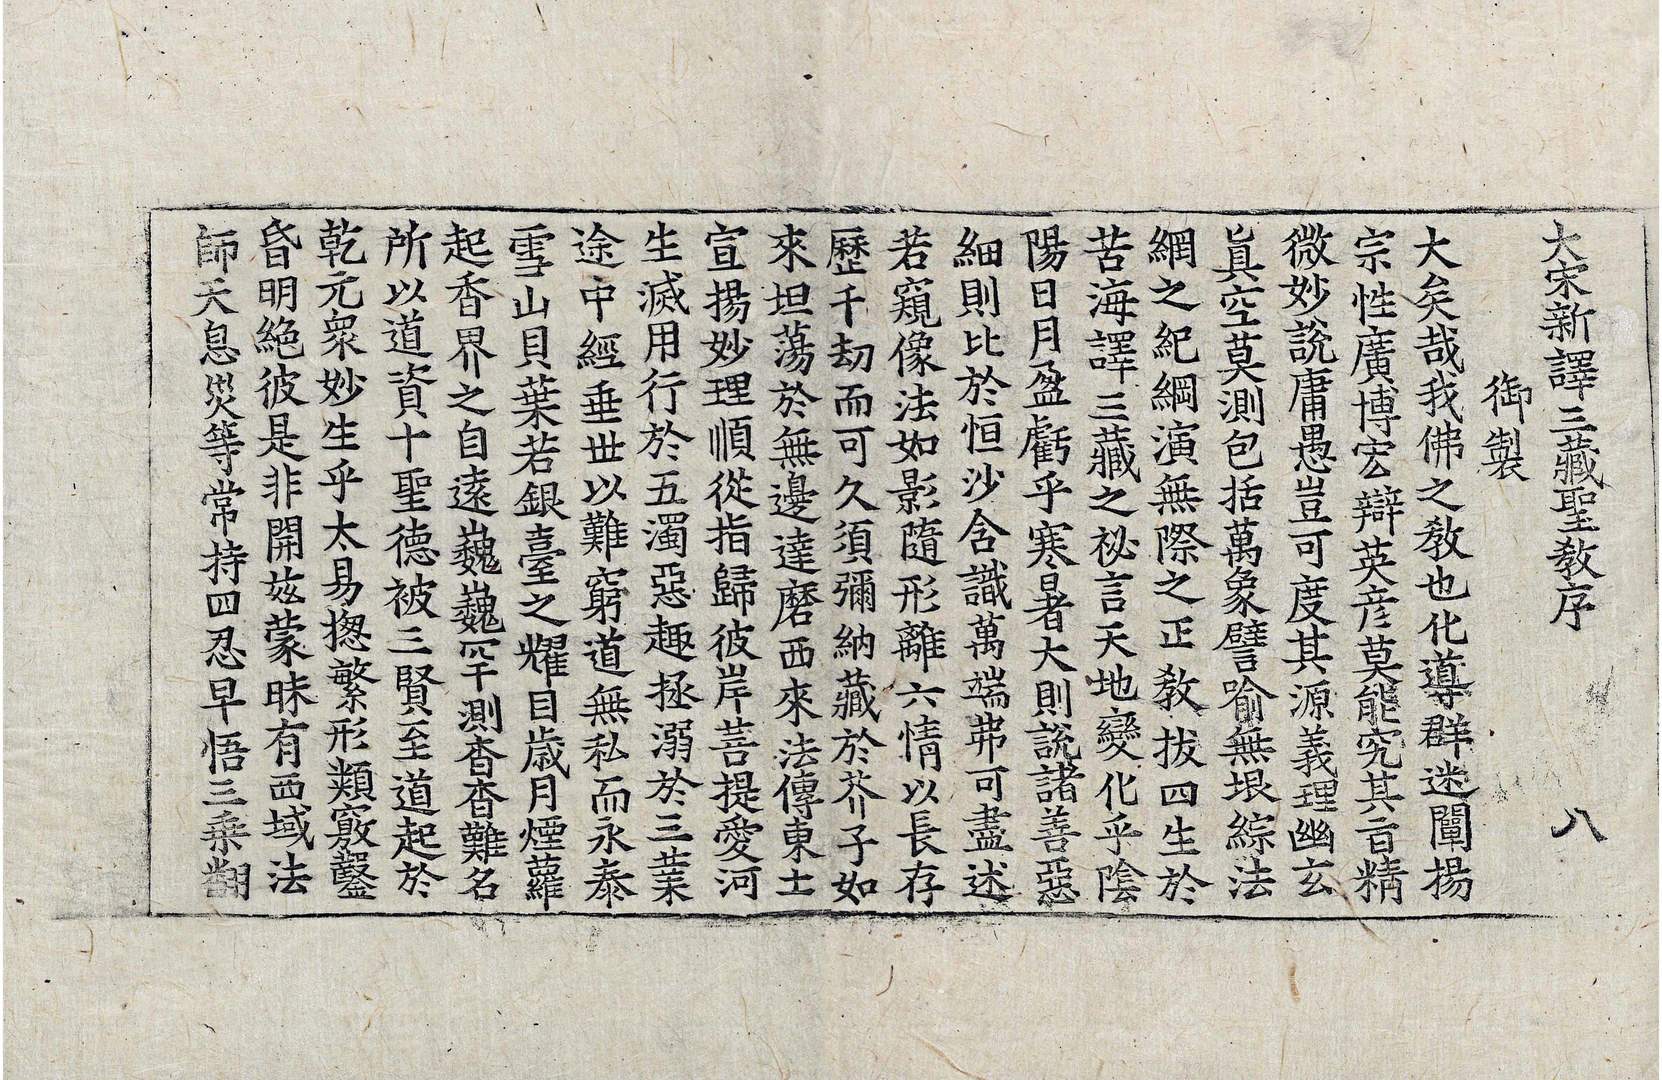 大宋新譯三藏聖敎序 八
御製
大矣哉我佛之敎也化導群迷闡揚
宗性廣博宏辯英彦莫能究其旨精
微妙說庸愚豈可度其源義理幽玄
眞空莫測包括萬象譬喻無垠綜法
網之紀綱演無際之正敎拔四生於
苦海譯三藏之祕言天地變化乎陰
陽日月盈虧乎寒暑大則說諸善惡
細則比於恒沙含識萬端弗可盡述
若窺像法如影隨形離六情以長存
歷千劫而可久須彌納藏於芥子如
來坦蕩於無邊達磨西來法傳東土
宣揚妙理順從指歸彼岸菩提愛河
生滅用行於五濁惡趣拯溺於三業
途中經垂世以難窮道無私而永泰
雪山貝葉若銀臺之耀目歲月煙蘿
起香界之自遠巍巍罕測杳杳難名
所以道資十聖德被三賢至道起於
乾元衆妙生乎太易揔繁形類竅鑿
昏明絶彼是非開玆蒙昧有西域法
師天息災等常持四忍早悟三乘翻